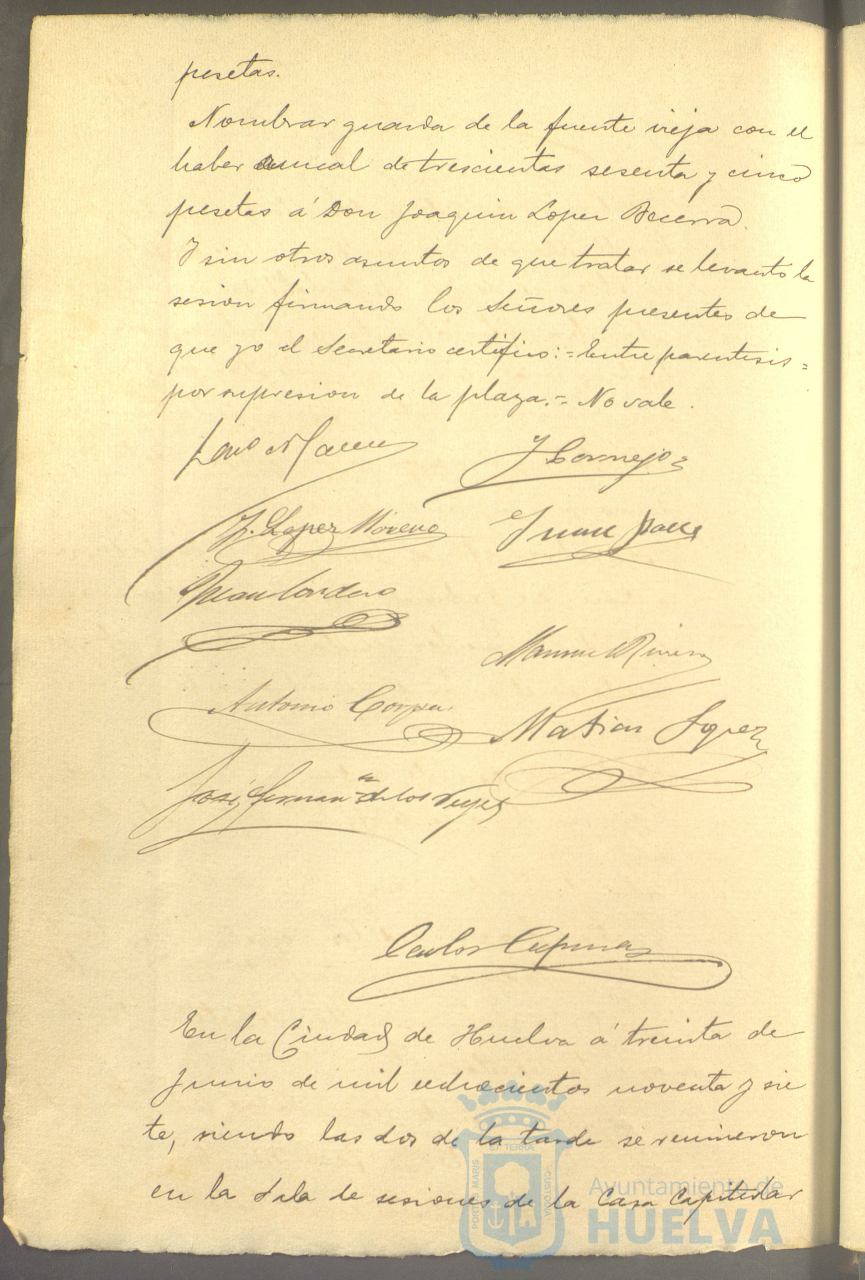 pesetas.
Nombrar guarda de la fuente vieja con el
haber anual de trescientas sesenta y cinco
pesetas á Don Joaquin Lopez Becerra.
Y sin otros asuntos de que tratar se levantó la
sesion firmando los Señores presentes de
que yo el Secretario certifico:=Entre parentisis=
por supresion de la plaza.= No vale.
J Cornejo
J. Lopez Moreno
Juan
Juan Cordero
Manuel
Antonio
Matias Lopez
José de los Reyes
Carlos
En la Ciudad de Huelva á treinta de
Junio de mil ochocientos noventa y sie
te, siendo las dos de la tarde se reunieron
en la Sala de sesiones de la Casa Capitular
PORTUS MARIS ET TERRAE CUSTODIA
Ayuntamiento de
HUELVA